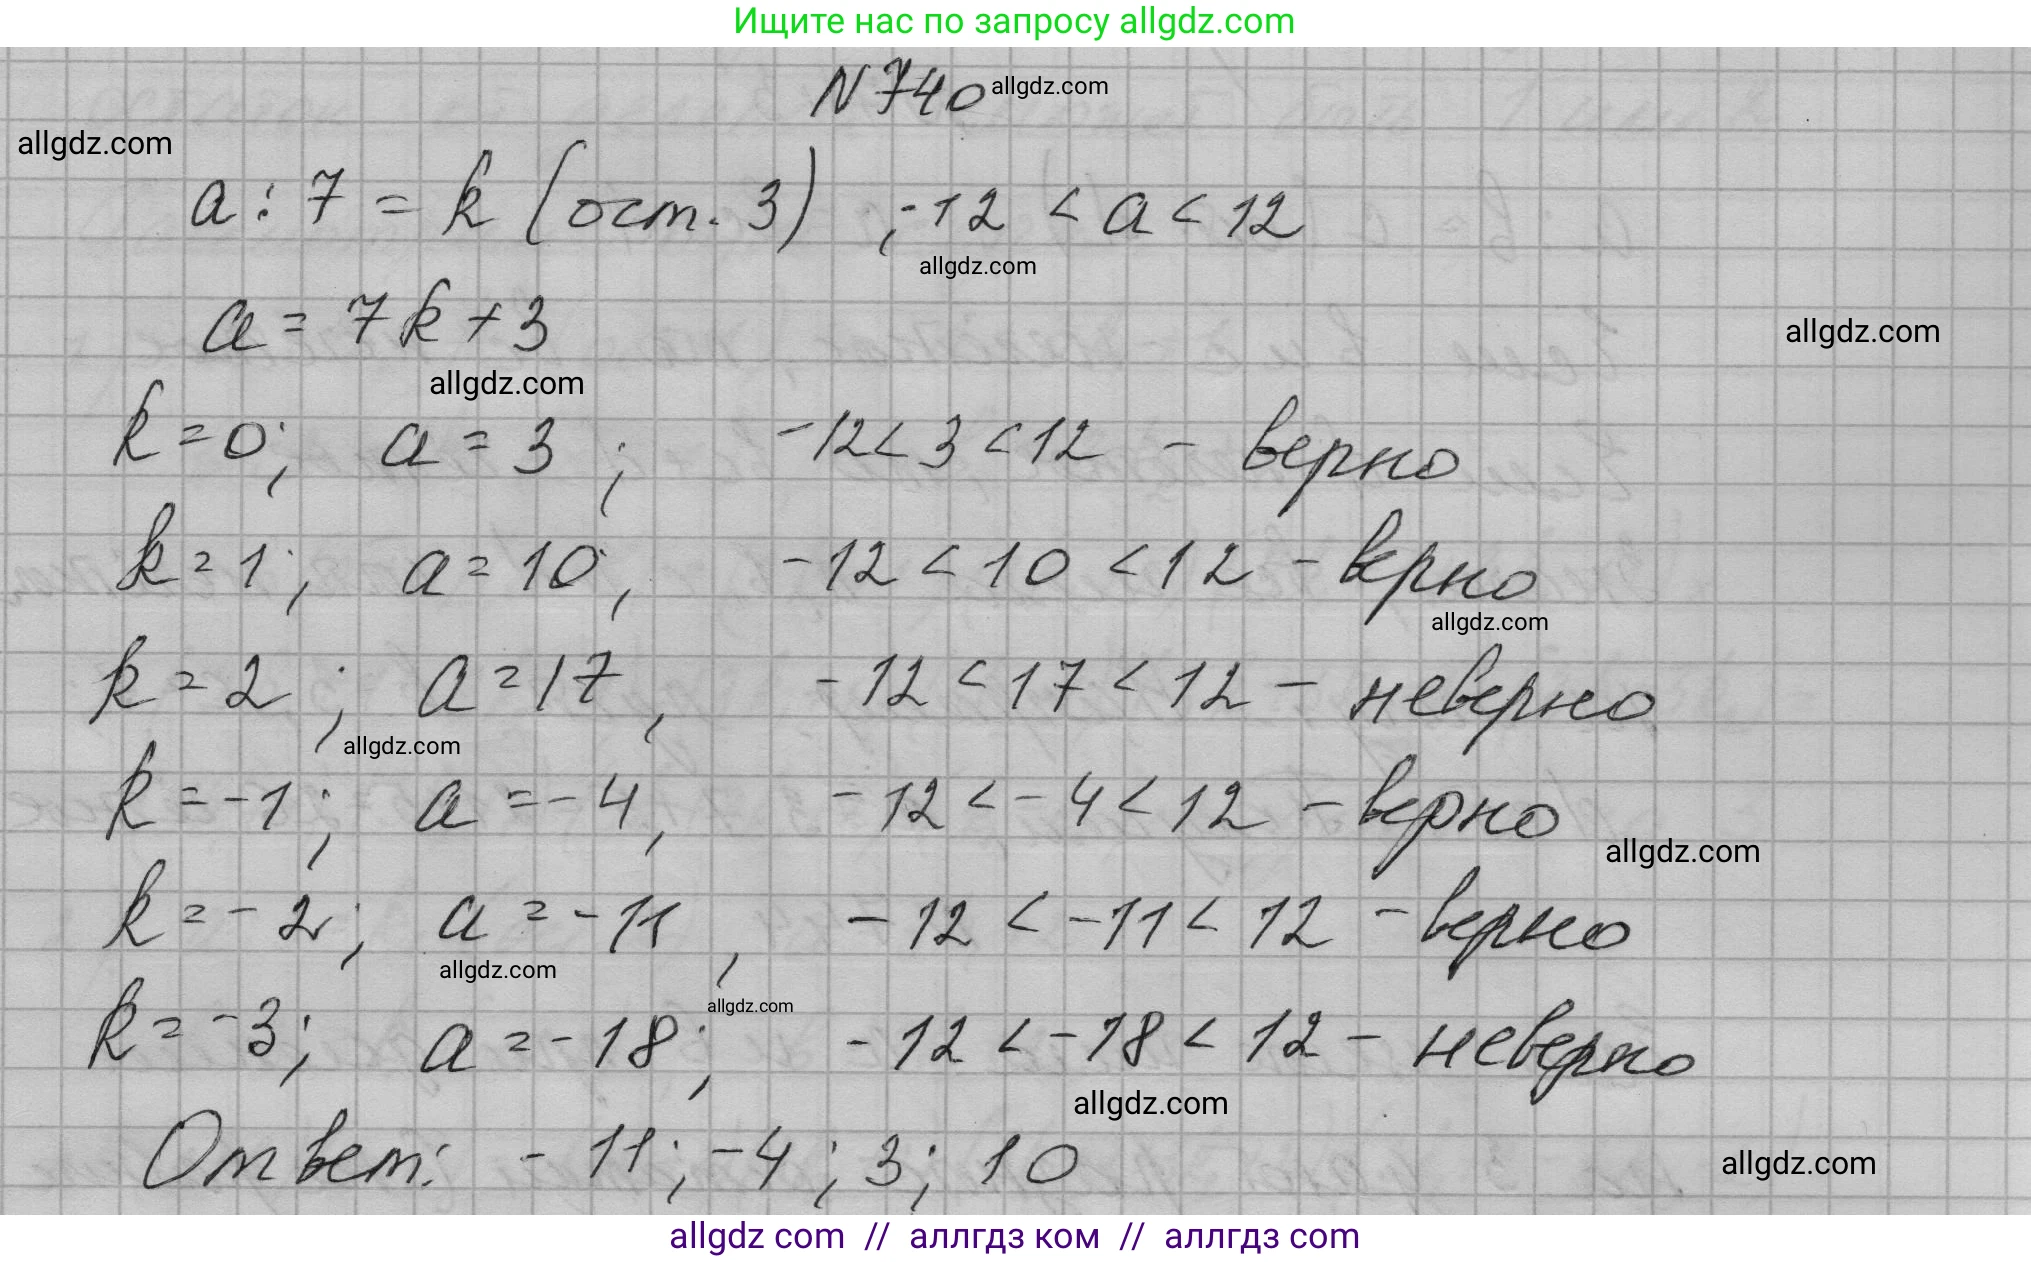 Ищите нас по запросу allgdz.com
N 740 allgdz.com
allgdz.com
a : 7 = k (ост. 3) ; -12 < a < 12
allgdz.com
a = 7k + 3
allgdz.com
allgdz.com
k = 0; a = 3 ; -12 < 3 < 12 - верно
k = 1; a = 10; -12 < 10 < 12 - верно
allgdz.com
k = 2 ; a = 17, -12 < 17 < 12 - неверно
allgdz.com
k = -1; a = -4, -12 < -4 < 12 - верно
allgdz.com
k = -2; a = -11, -12 < -11 < 12 - верно
allgdz.com
allgdz.com
k = -3; a = -18; -12 < -18 < 12 - неверно
allgdz.com
Ответ: -11; -4; 3; 10
allgdz.com
allgdz com // аллгдз ком // аллгдз com